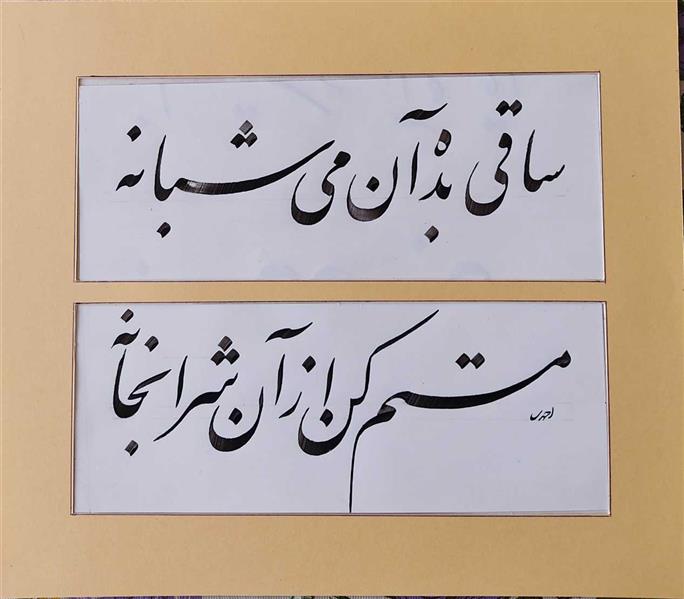 ساقی بده آن می شبانه
مستم کن از آن شرابخانه